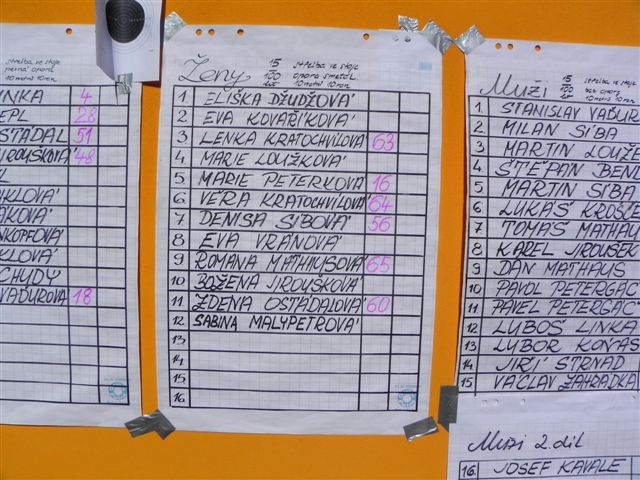 střelba ve stoje
pevná opora
10 metrů 10 ran
INKA 4
EPL 28
STÁDAL 51
JIROUŠKOVÁ 48
L
KLOVÁ
AKOVÁ
NKOPFOVÁ
KLOVÁ
CHUDÝ
VAĎUROVÁ 18
Ženy
15 střelba ve stoje
100 opora
10 metrů 10 ran
1 ELIŠKA DŽUDŽOVÁ
2 EVA KOVAŘÍKOVÁ
3 LENKA KRATOCHVÍLOVÁ 63
4 MARIE LOUŽKOVÁ
5 MARIE PETERKOVÁ 16
6. VĚRA KRATOCHVÍLOVÁ 64
7 DENISA SIBOVÁ 56
8 EVA VRÁNOVÁ
9 ROMANA MATHAUSOVÁ 65
10 BOŽENA JIROUŠKOVÁ
11 ZDENA OSTÁDALOVÁ 60
12 SABINA MALYPETROVÁ
13.
14.
15
16.
Muži
15 střelba ve stoje
100 bez opory
10 metrů 10 ran
1. STANISLAV VAĎUR
2. MILAN SIBA
3 MARTIN LOUŽE
4 ŠTĚPÁN BEN
5 MARTIN SIBA
6 LUKÁŠ
7. TOMÁŠ MATHAU
8 KAREL JIROUŠEK
9 DAN MATHAUS
10 PAVOL PETERGÁČ
11 PAVEL PETERGÁČ
12 LUBOŠ LINKA
13 LUBOR KOŇAS
14 JIŘÍ STRNAD
15 VÁCLAV ZAHRÁDKA
Muži 2. díl
16. JOSEF KAVALE